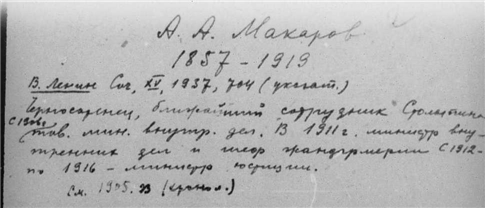 А. А. Макаров
1857 - 1919
В. Ленин Соч, XV, 1937, 704 (указат.)
Черносотенец, ближайший сотрудник Столыпина
С 1906 г тов. мин. внутр. дел. В 1911 г. министр вну-
тренних дел и шеф жандармерии С 1912-
по 1916 - министр юстиции.
См. 1905. В (хронол.)